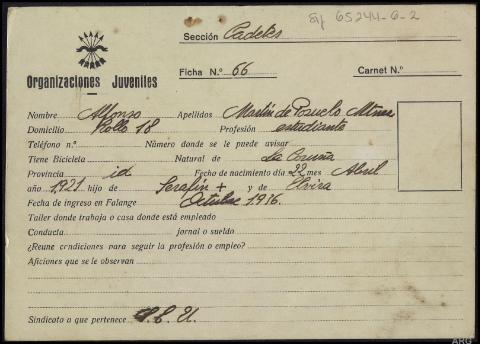 65244-6-2
Sección Cadetes
Organizaciones Juveniles
Ficha N.º 66 Carnet N.º
Nombre Alfonso Apellidos Martín de Pozuelo Mtnez
Domicilio Rollo 18 Profesión estudiante
Teléfono n.º Número donde se le puede avisar
Tiene Bicicleta Natural de La Coruña
Provincia id Fecha de nacimiento día 22 mes Abril
año 1921 hijo de Serafín + y de Elvira
Fecha de ingreso en Falange Octubre 1936.
Taller donde trabaja o casa donde está empleado
Conducta jornal o sueldo
¿Reune condiciones para seguir la profesión o empleo?
Aficiones que se le observan
Sindicato a que pertenece S. E. U.
ARG